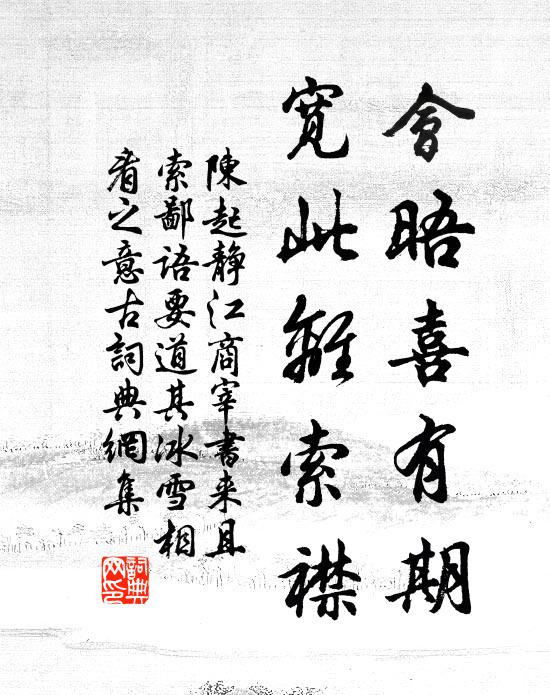 會晤喜有期
寬此離索襟
陳起靜江商宰書来且
索鄙語要道其冰雪相
看之意古詞典網集
詞典
网印